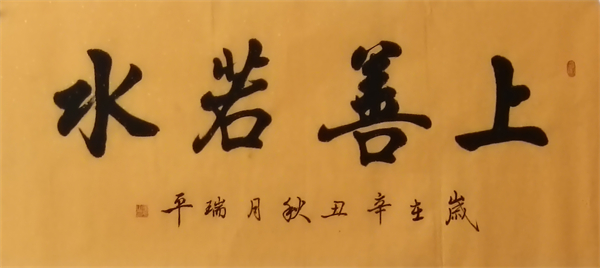 上善若水
歲在辛丑秋月瑞平